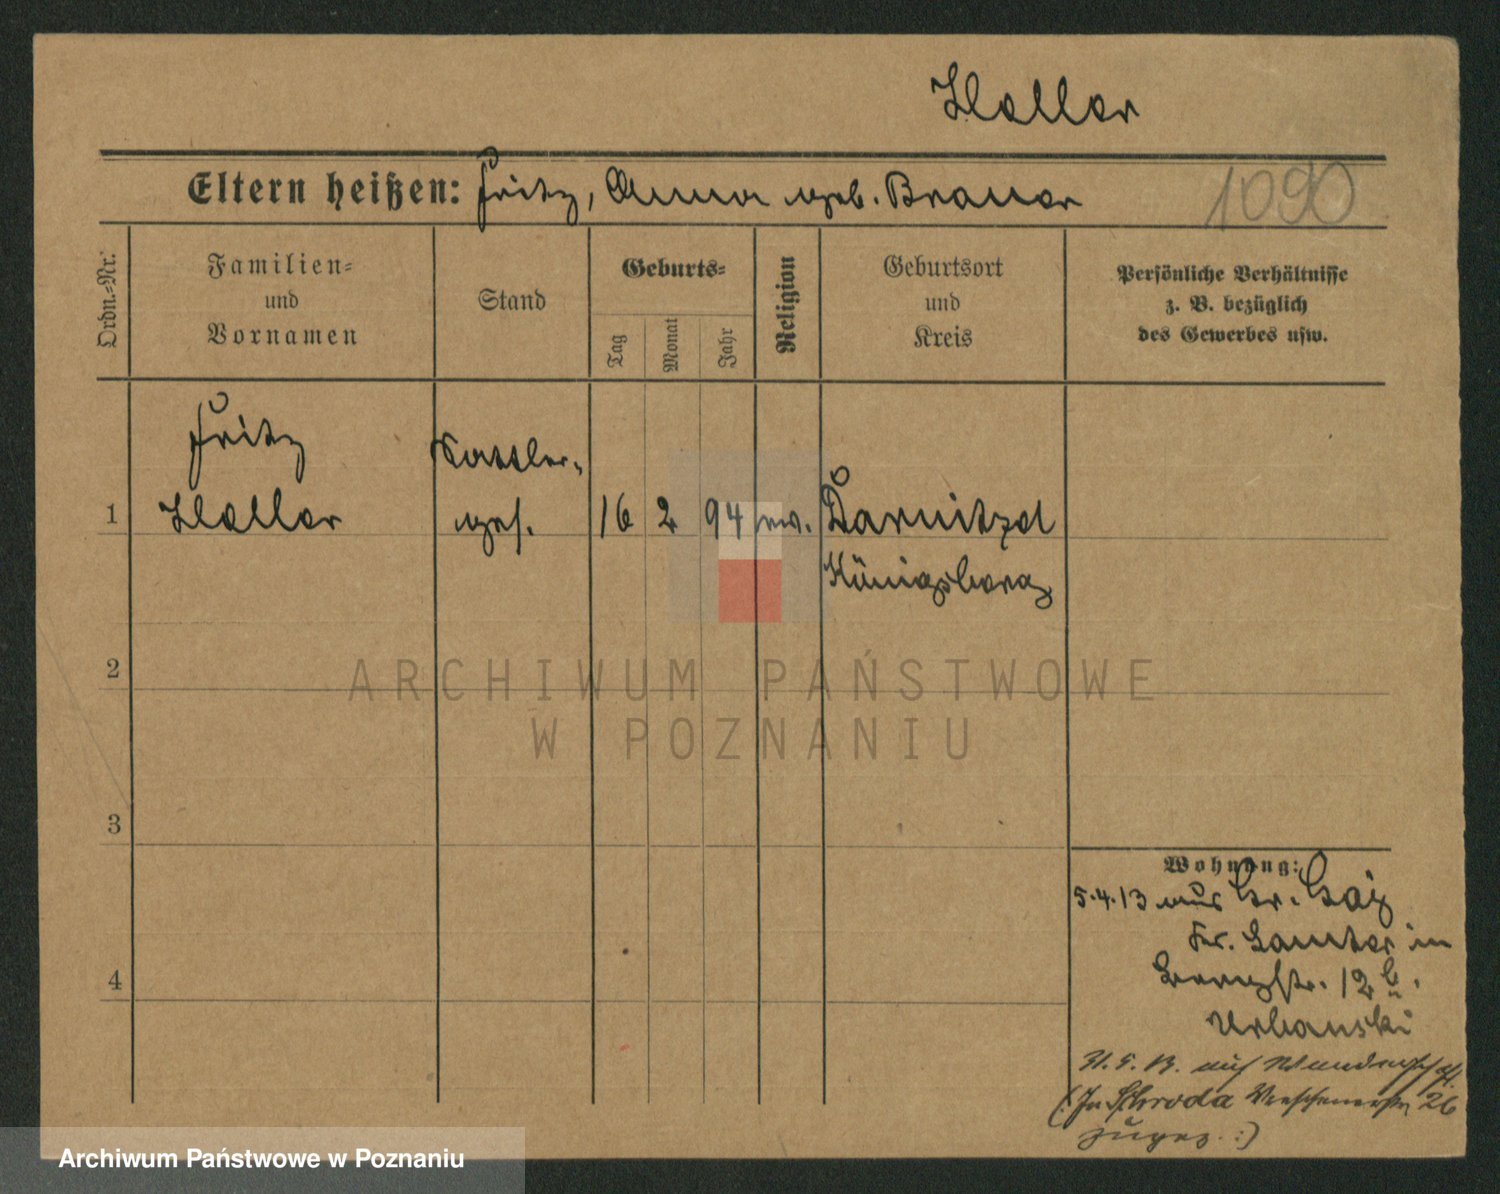 Haller
Eltern heißen: Fritz, Anna geb. Brauer
1090
Ordn.-Nr.
Familien-
und
Vornamen
Stand
Geburts-
Tag
Monat
Jahr
Religion
Geburtsort
und
Kreis
Persönliche Verhältnisse
z. B. bezüglich
des Gewerbes usw.
1
Fritz
Haller
Sattler-
ges.
16
2
94
ev.
Königsberg
2
ARCHIWUM PAŃSTWOWE
W POZNANIU
3
Wohnung:
5.4.13 aus Gr. Gay
Kr. Samter in
12 b.
Urbanski
31.5.13. auf Wanderschaft.
(: In Schroda 26
zugez. :)
4
Archiwum Państwowe w Poznaniu